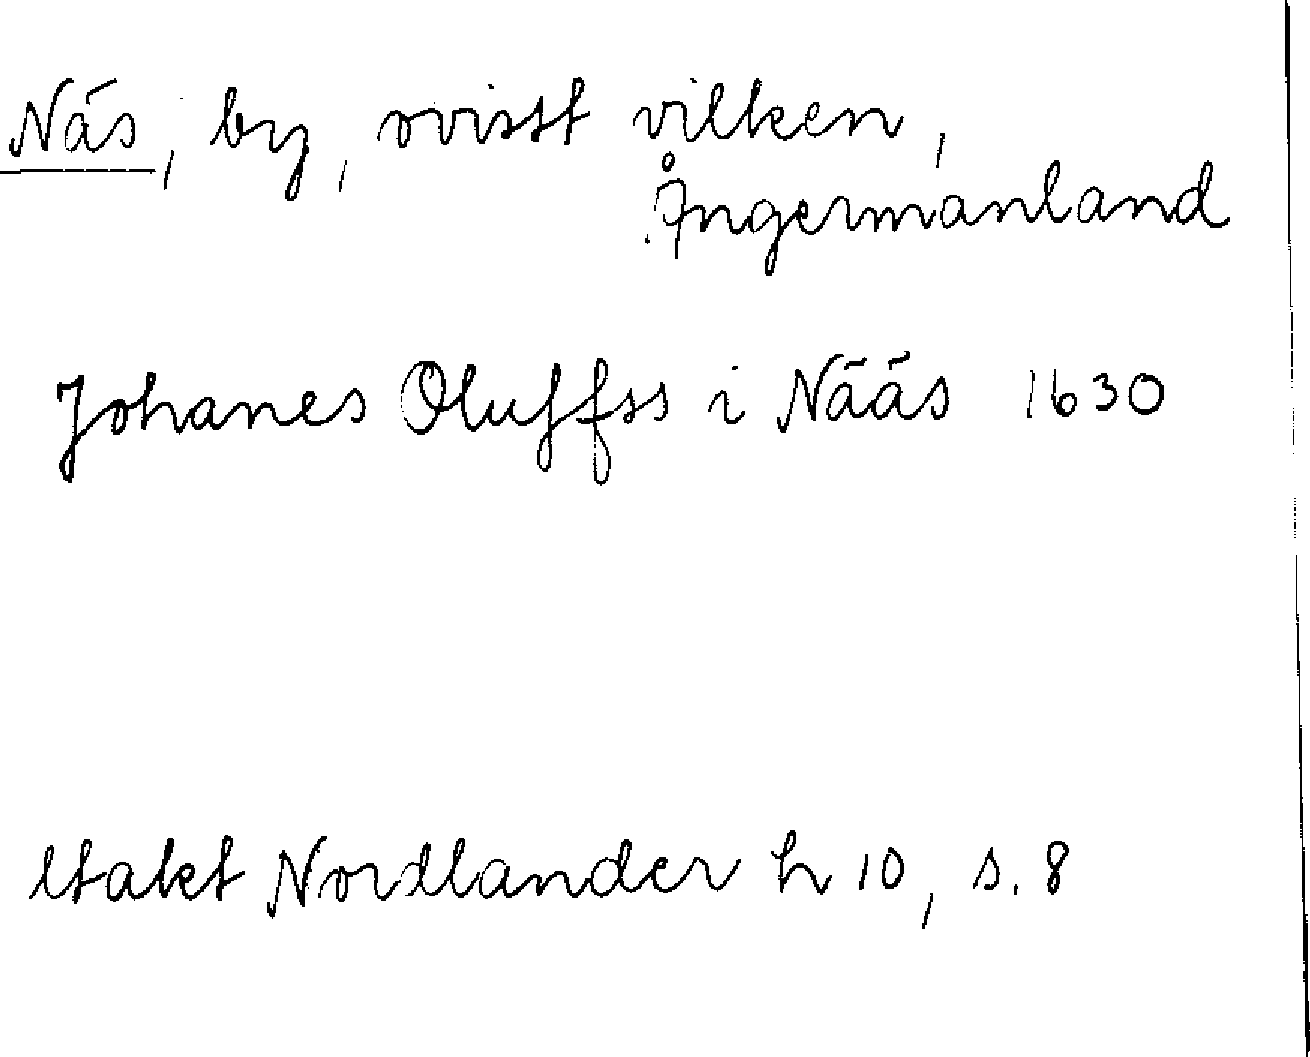 Näs, by, ovisst vilken,
Ångermanland
Johanes Oluffss i Nääs 1630
Utakt Nordlander h 10, s. 8